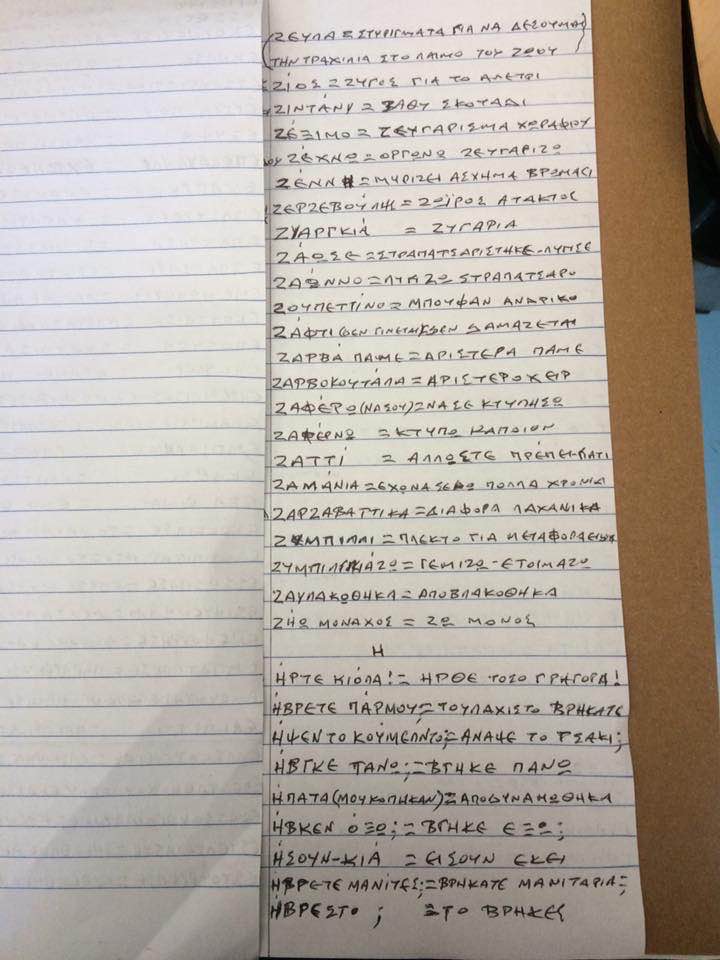 (ΖΕΥΛΑ = ΣΤΥΡΙΓΜΑΤΑ ΓΙΑ ΝΑ ΔΕΣΟΥΜΑΙ
ΤΗΝ ΤΡΑΧΙΛΙΑ ΣΤΟ ΛΑΙΜΟ ΤΟΥ ΖΩΟΥ)
ΖΙΟΣ = ΖΥΓΟΣ ΓΙΑ ΤΟ ΑΛΕΤΡΙ
ΖΙΝΤΑΝΥ = ΒΑΘΥ ΣΚΟΤΑΔΙ
ΖΕΞΙΜΟ = ΖΕΥΓΑΡΙΣΜΑ ΧΩΡΑΦΟΥ
ΖΕΧΝΩ = ΟΡΓΩΝΩ ΖΕΥΓΑΡΙΖΩ
ΖΕΝΝΗ = ΜΥΡΙΖΕΙ ΑΣΧΗΜΑ ΒΡΩΜΑΕΙ
ΖΕΡΖΕΒΟΥΛΗΣ = ΖΩΪΡΟΣ ΑΤΑΚΤΟΣ
ΖΥΑΡΓΚΙΑ = ΖΥΓΑΡΙΑ
ΖΑΩΣΕ = ΣΤΡΑΠΑΤΣΑΡΙΣΤΗΚΕ-ΛΥΓΙΣΕ
ΖΑΩΝΝΟ = ΛΥΓΙΖΩ ΣΤΡΑΠΑΤΣΑΡΩ
ΖΟΥΠΕΤΤΙΝΟ = ΜΠΟΥΦΑΝ ΑΝΔΡΙΚΟ
ΖΑΦΤΙ (ΔΕΝ ΓΙΝΕΤΑΙ) = ΔΕΝ ΔΑΜΑΖΕΤΑΙ
ΖΑΡΒΑ ΠΑΜΕ = ΑΡΙΣΤΕΡΑ ΠΑΜΕ
ΖΑΡΒΟΚΟΥΤΑΛΑ = ΑΡΙΣΤΕΡΟΧΕΙΡ
ΖΑΦΕΡΩ (ΝΑ ΣΟΥ) = ΝΑ ΣΕ ΚΤΥΠΗΣΩ
ΖΑΦΕΡΝΩ = ΚΤΥΠΩ ΚΑΠΟΙΟΝ
ΖΑΤΤΙ = ΑΛΛΩΣΤΕ ΠΡΕΠΕΙ-ΓΙΑΤΙ
ΖΑΜΑΝΙΑ = ΕΧΩ ΝΑ ΣΕ ΔΩ ΠΟΛΛΑ ΧΡΟΝΙΑ
ΖΑΡΖΑΒΑΤΤΙΚΑ = ΔΙΑΦΟΡΑ ΛΑΧΑΝΙΚΑ
ΖΥΜΠΙΛΛΙ = ΠΛΕΚΤΟ ΓΙΑ ΜΕΤΑΦΟΡΑ ΕΙΔΩΝ
ΖΥΜΠΙΛΙΑΖΩ = ΓΕΜΙΖΩ-ΕΤΟΙΜΑΖΩ
ΖΑΥΛΑΚΩΘΗΚΑ = ΑΠΟΒΛΑΚΟΘΗΚΑ
ΖΗΩ ΜΟΝΑΧΟΣ = ΖΩ ΜΟΝΟΣ
Η
ΗΡΤΕ ΚΙΟΛΑ! = ΗΡΘΕ ΤΟΣΟ ΓΡΗΓΟΡΑ!
ΗΒΡΕΤΕ ΠΑΡΜΟΥ = ΤΟΥΛΑΧΙΣΤΟ ΒΡΗΚΑΤΕ
ΗΨΕΝ ΤΟ ΚΟΥΜΕΛΝΤΟ; = ΑΝΑΨΕ ΤΟ ΤΣΑΚΙ;
ΗΒΓΚΕ ΠΑΝΩ; = ΒΓΗΚΕ ΠΑΝΩ
ΗΠΑΤΑ (ΜΟΥ ΚΟΠΗΚΑΝ) = ΑΠΟΔΥΝΑΜΩΘΗΚΑ
ΗΒΚΕΝ ΌΞΩ; = ΒΓΗΚΕ ΕΞΩ;
ΗΣΟΥΝ-ΚΙΑ = ΕΙΣΟΥΝ ΕΚΕΙ
ΗΒΡΕΤΕ ΜΑΝΙΤΕΣ; = ΒΡΗΚΑΤΕ ΜΑΝΙΤΑΡΙΑ;
ΗΒΡΕΣ ΤΟ; = ΤΟ ΒΡΗΚΕΣ